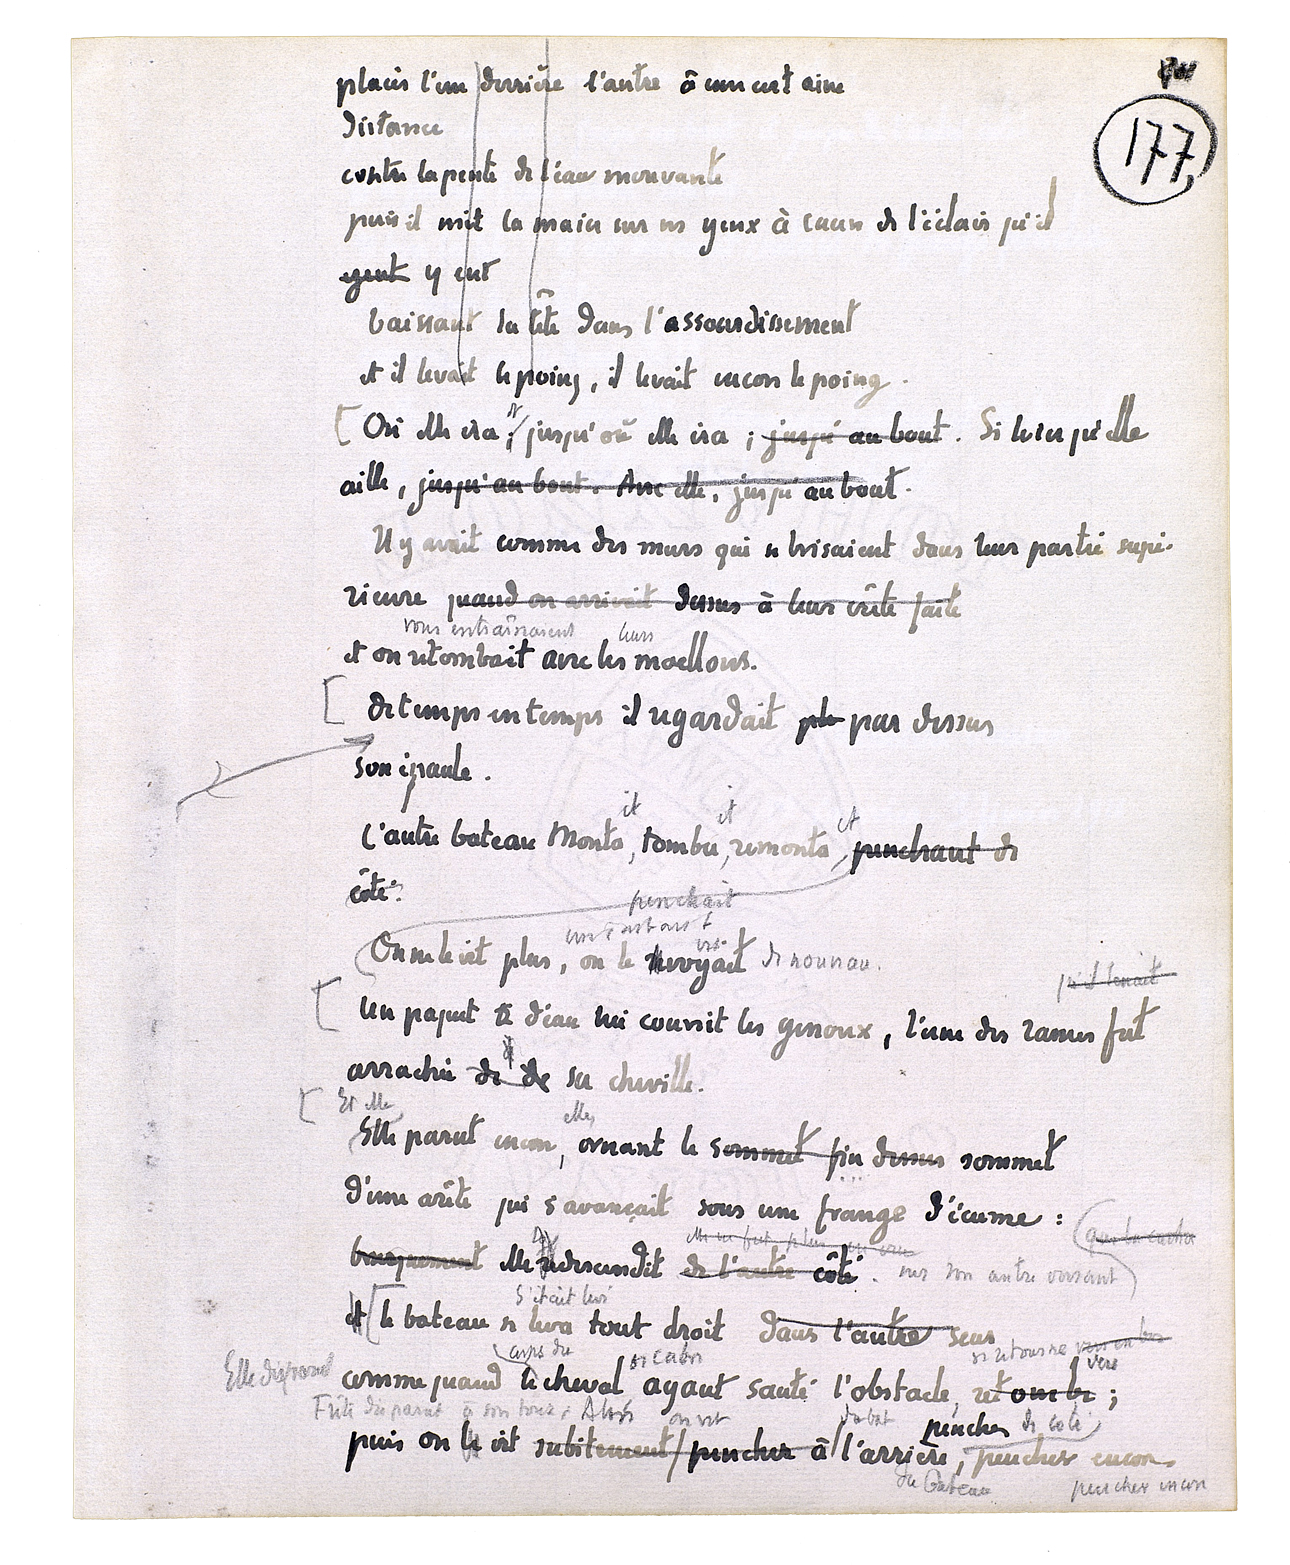 177
placés l'un derrière l'autre à une certaine
distance
contre la pente de l'eau mouvante
puis il mit la main sur ses yeux à cause de l'éclair qu'il
y eut
baissant la tête dans l'assourdissement
et il levait le poing, il levait encore le poing.
Où elle ira, jusqu'où elle ira ; jusqu'au bout. Si loin qu'elle
aille, jusqu'au bout. Avec elle, jusqu'au bout.
Il y avait comme des murs qui se brisaient dans leur partie supé-
rieure quand on arrivait dessus à leur crête faite
vous entraînaient leurs
et on retombait avec les moellons.
de temps en temps il regardait par dessus
son épaule.
et et et
L'autre bateau monta, tomba, remonta, penchant de
côté.
penchait
un instant
On ne le vit plus, on le revoyait de nouveau.
qu'il tenait
Un paquet d'eau lui couvrit les genoux, l'une des rames fut
arrachée de sa cheville.
Et elle elle
Elle parut encore, ornant le sommet fin dessus sommet
d'une arête qui s'avançait sous une frange d'écume :
qui la cacha
elle ne fut plus en vue
brusquement elle redescendit de l'autre côté. sur son autre versant
s'était levé
et le bateau se leva tout droit dans l'autre sens
corps du se cabre se retourne vers en bas
Elle disparut comme quand le cheval ayant sauté l'obstacle, retombe ;
disparut à son tour ; Alors on vit pencher de côté
puis on le vit subitement pencher à l'arrière, pencher encore
du bateau pencher encore